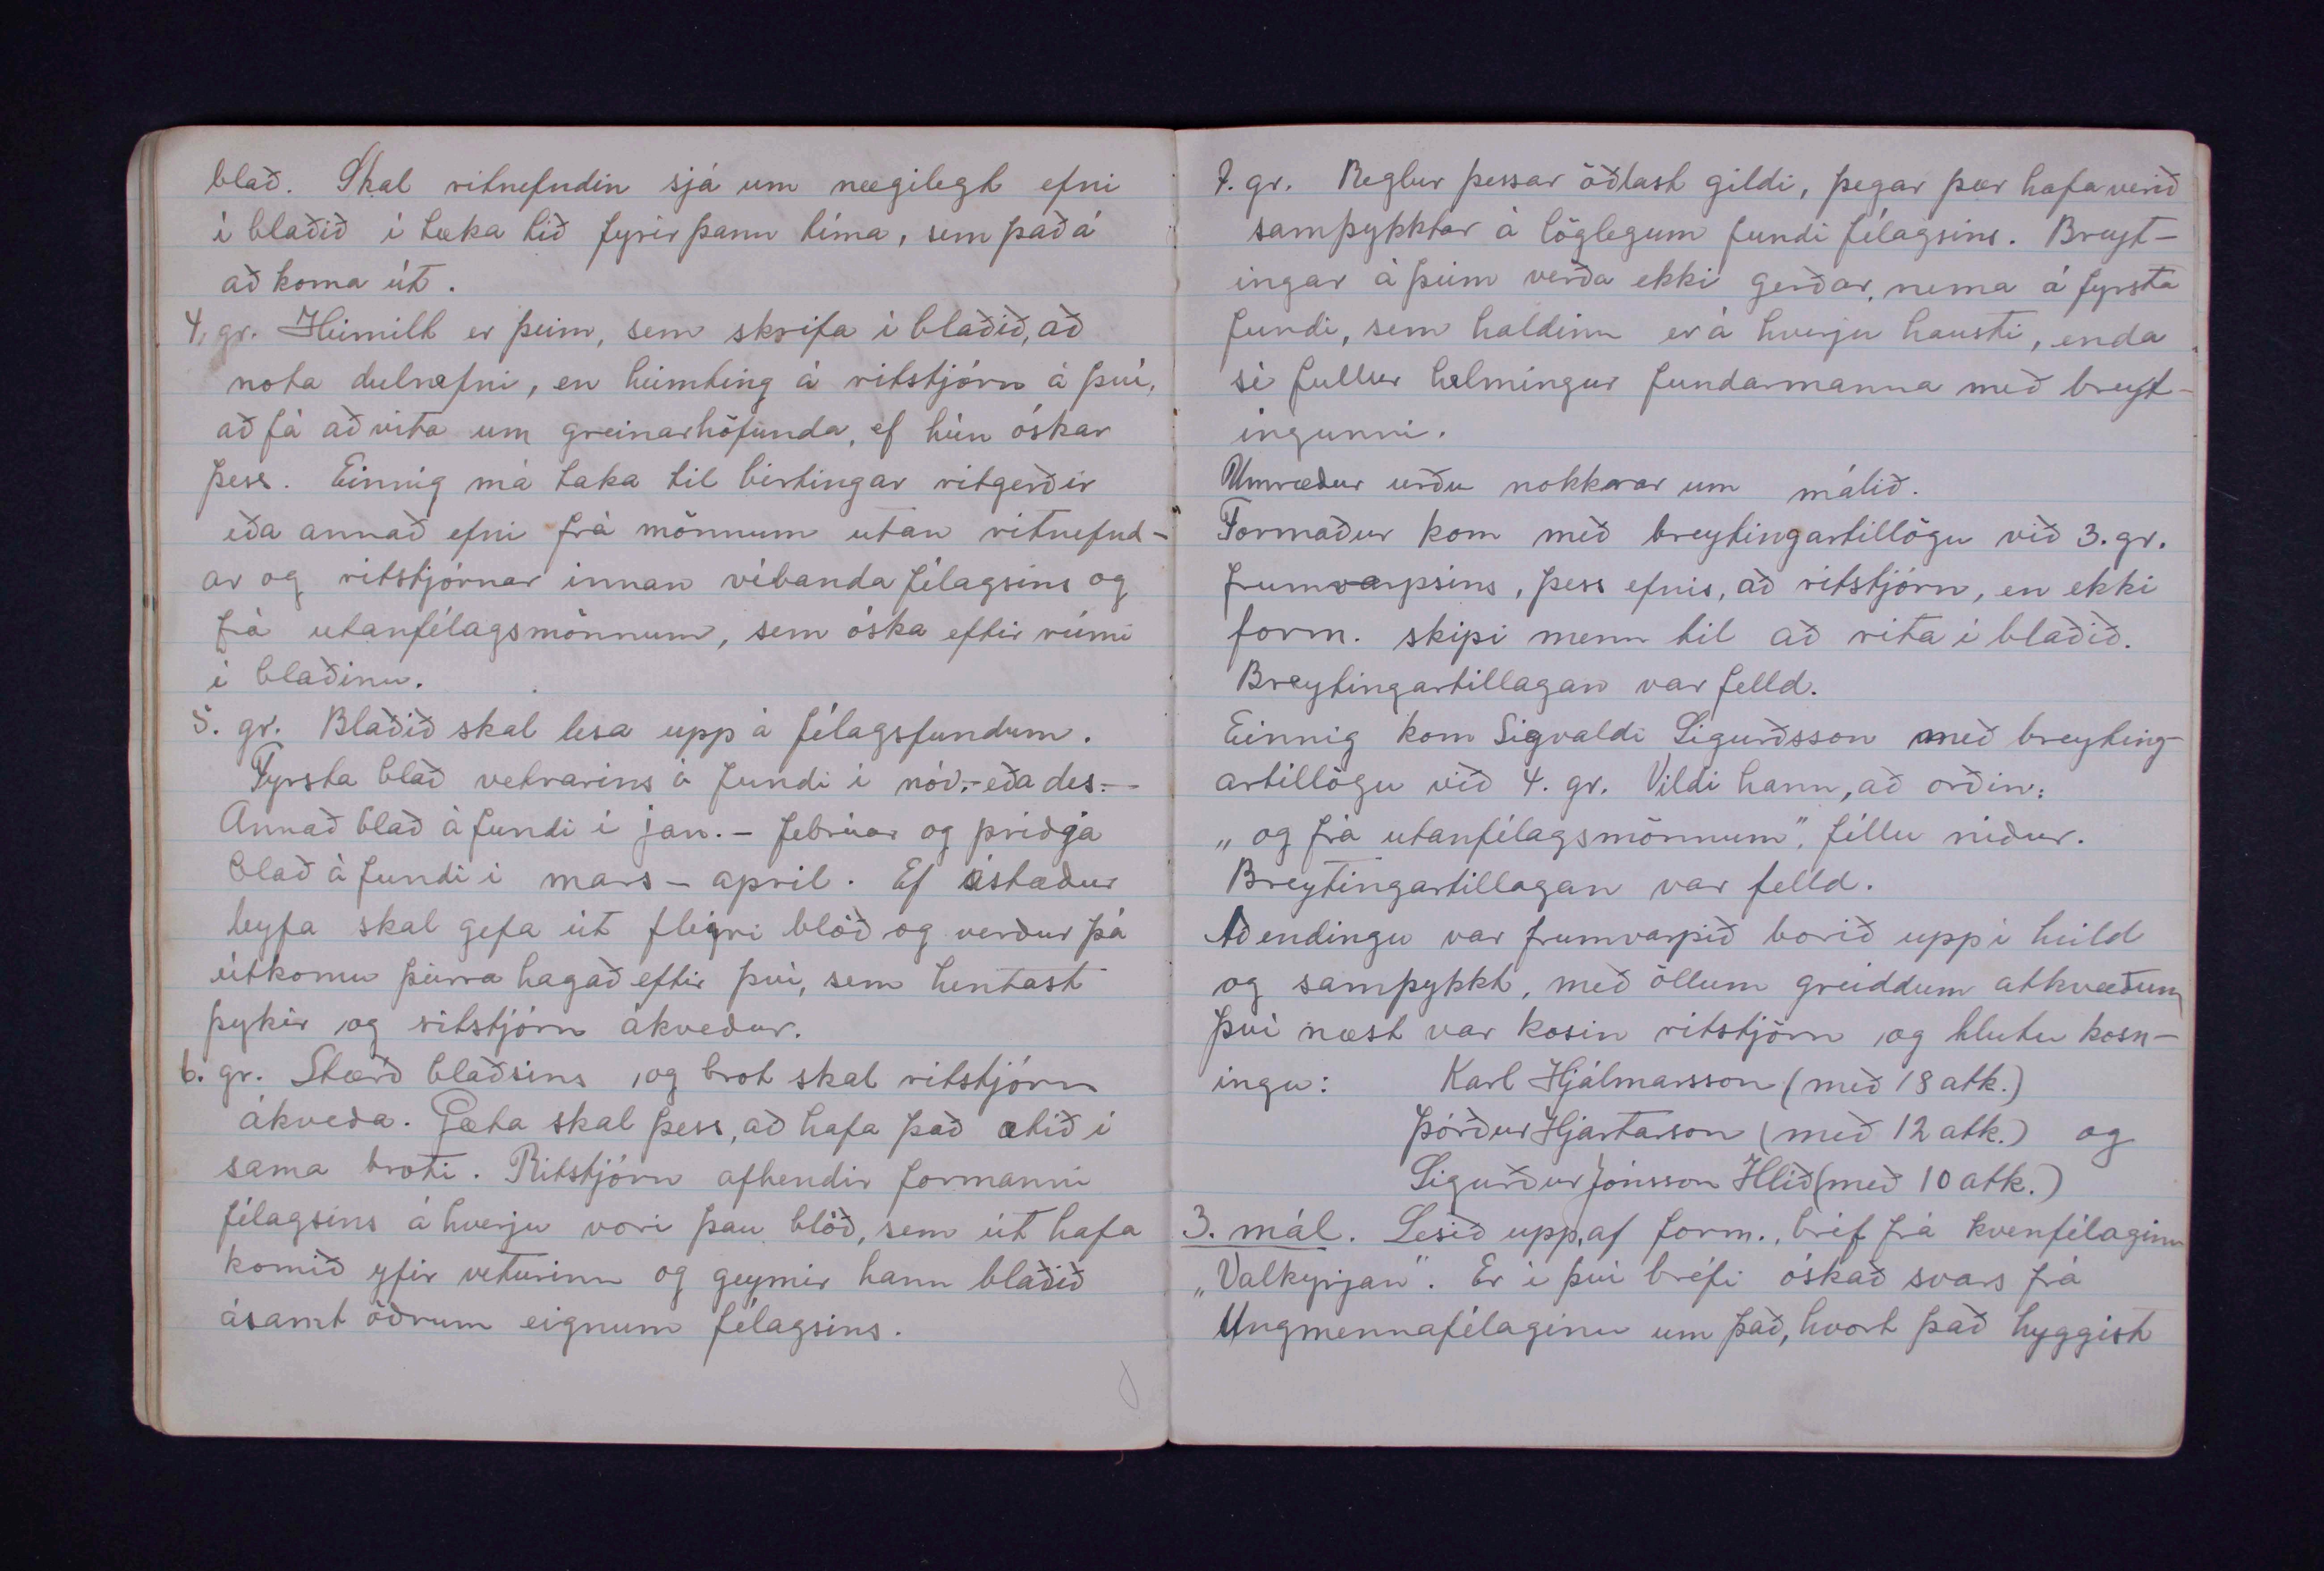 blað. Skal ritnefndin sjá um nægilegt efni
í blaðið í tæka tíð fyrir þann tíma, sem það á
að koma út.
4. gr. Heimilt er þeim, sem skrifa í blaðið, að
nota dulnefni, en heimting á ritstjórn á því,
að fá að vita um greinarhöfunda, ef hún óskar
þess. Einnig má taka til birtingar ritgerðir
eða annað efni frá mönnum utan ritnefnd-
ar og ritstjórnar innan vébanda félagsins og
frá utanfélagsmönnum, sem óska eftir rúmi
í blaðinu.
5. gr. Blaðið skal lesa upp á félagsfundum.
Fyrsta blað vetrarins á fundi í nóv.- eða des.-
Annað blað á fundi í jan. - febrúar og þriðja
blað á fundi í mars - apríl. Ef ástæður
leyfa skal gefa út fleiri blöð og verður þá
útkomu þeirra hagað eftir því, sem hentast
þykir og ritstjórn ákveður.
6. gr. Stærð blaðsins og brot skal ritstjórn
ákveða. Gæta skal þess, að hafa það ætíð í
sama broti. Ritstjórn afhendir formanni
félagsins á hverju vori þau blöð, sem út hafa
komið yfir veturinn og geymir hann blaðið
ásamt öðrum eignum félagsins.
7. gr. Reglur þessar öðlast gildi, þegar þær hafa verið
samþykktar á löglegum fundi félagsins. Breyt-
ingar á þeim verða ekki gerðar, nema á fyrsta
fundi, sem haldinn er á hverju hausti, enda
sé fullur helmingur fundarmanna með breyt-
ingunni.
Umræður urðu nokkrar um málið.
Formaður kom með breytingartillögu við 3. gr.
frumvarpsins, þess efnis, að ritstjórn, en ekki
form. skipi menn til að rita í blaðið.
Breytingartillagan var felld.
Einnig kom Sigvaldi Sigurðsson með breyting-
artillögu við 4. gr. Vildi hann, að orðin:
„og frá utanfélagsmönnum", féllu niður.
Breytingartillagan var felld.
Að endingu var frumvarpið borið upp í heild
og samþykkt, með öllum greiddum atkvæðum
Því næst var kosin ritstjórn og hlutu kosn-
ingu: Karl Hjálmarsson (með 18 atk.)
Þórður Hjartarson (með 12 atk.) og
Sigurður Jónsson Hlíð (með 10 atk.)
3. mál. Lesið upp, af form., bréf frá kvenfélaginu
„Valkyrjan". Er í því bréfi óskað svars frá
Ungmennafélaginu um það, hvort það hyggist